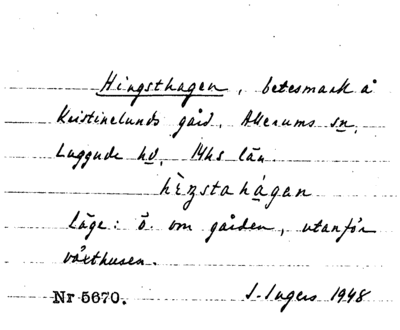 Hingsthagen, betesmark å
Kristinelunds gård, Allerums sn,
Luggude hd, Mhs län.
hèŋstahágan
Läge: Ö. om gården, utanför
växthusen.
Nr 5670. I. Ingers 1948